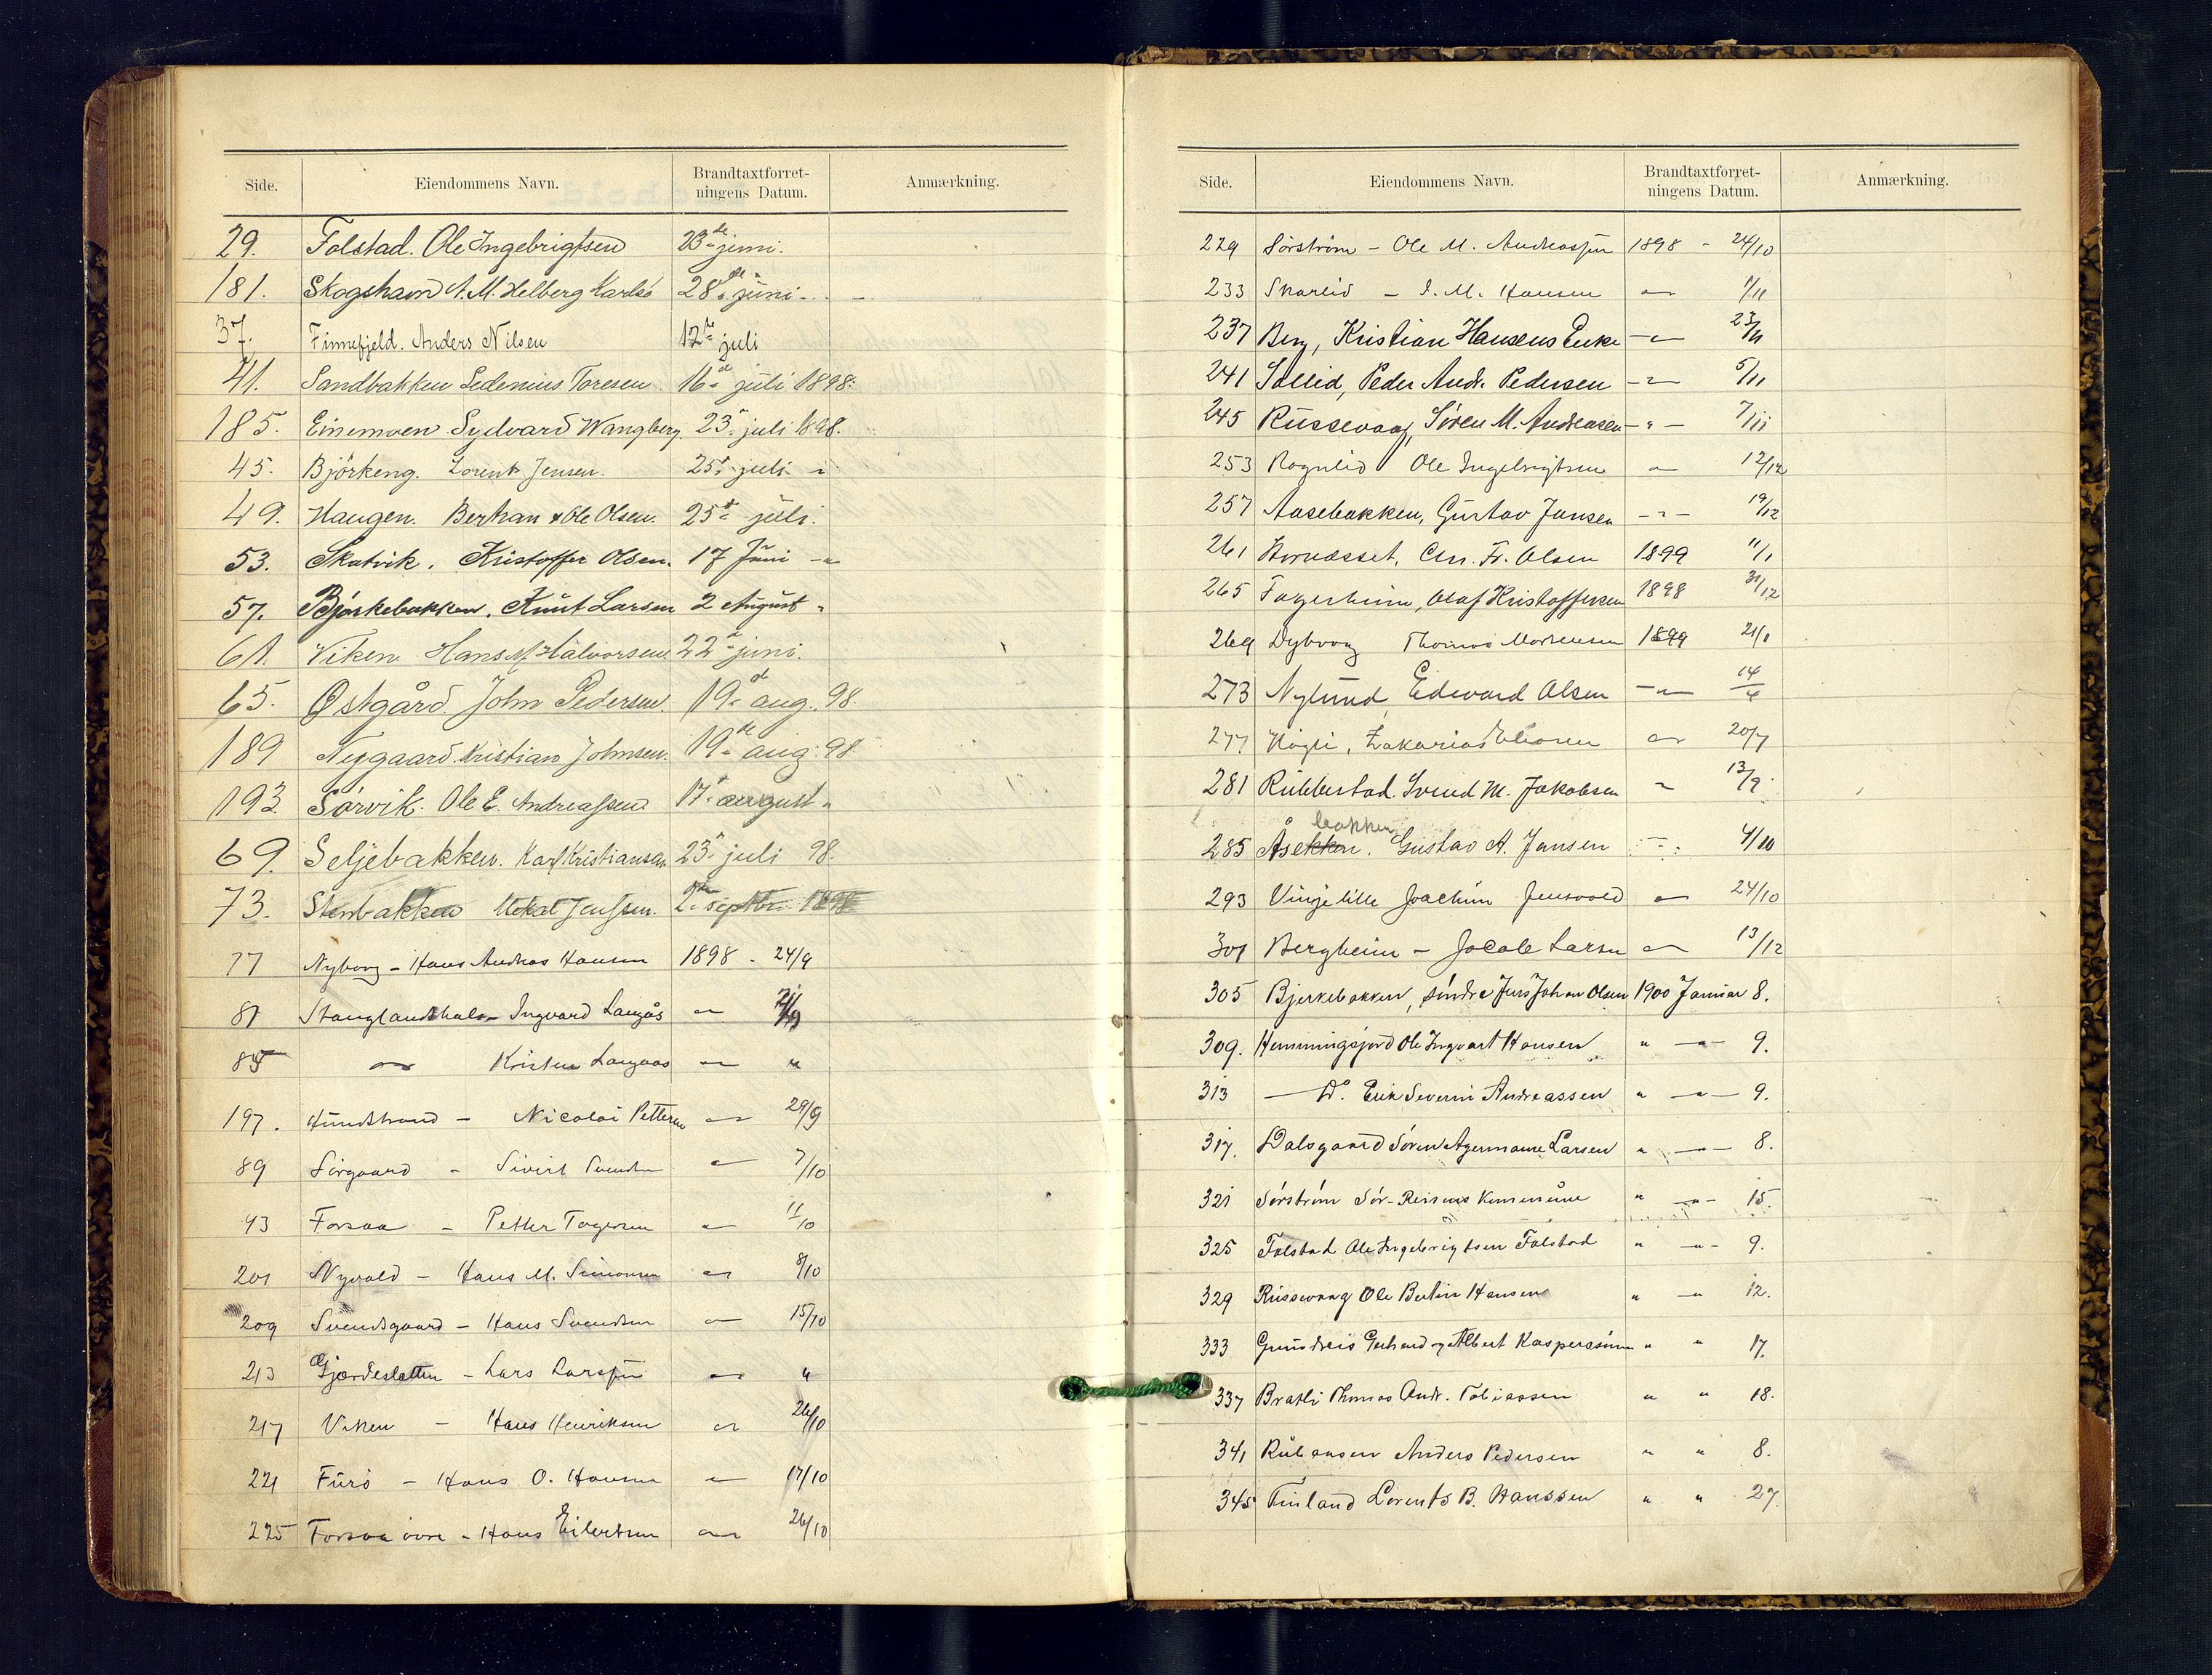 Side. Eiendommens Navn. Brandtaxtforret-ningens Datum. Anmærkning.
29. Folstad. Ole Ingebrigtsen 23de juni.
181. Skogshavn A. M. Helberg Karlsö 28de juni -
37. Finnefjeld. Anders Nilsen 12te juli
41. Sandbakken Sedenius Toresen 16de juli 1898.
185. Einemoen Sydvard Wangberg. 23de juli 1898.
45. Björkeng. Lorents Jensen. 25de juli "
49. Haugen. Berthan & Ole Olsen. 25de juli.
53. Skatvik. Kristoffer Olsen. 17 Juni -"
57. Bjørkebakken. Knut Larsen 2 August "
61. Viken Hans M. Halvorsen. 22de juni.
65. Østgård. John Pedersen. 19de aug. 98.
189 Nygaard. Kristian Johnsen. 19de aug. 98
193 Sørvik. Ole E. Andreassen 17de august "
69. Seljebakken. Karl Kristiansen 23de juli 98.
73. Stenbakken Mekal Jenssen. 2den septbr. 1898
77 Nyborg - Hans Andreas Hansen 1898 - 24/9
81 Stanglandshals - Ingvard Langås -"- 21/9
85 -"- Kristen Langaas -"- "
197. Hundstrand - Nicolai Pettersen -"- 29/9
89 Sörgaard - Sivert Svendsen -"- 7/10
93 Forsaa - Petter Togersen -"- 11/10
201 Nyvold - Hans M. Simonsen -"- 8/10
209 Svendsgaard - Hans Svendsen -"- 15/10
213 Gjærdesletten - Lars Larssen -"- "
217 Viken - Hans Henriksen -"- 26/10
221 Furö - Hans O. Hansen -"- 17/10
225 Forsaa övre - Hans Eilertsen -"- 26/10
Side. Eiendommens Navn. Brandtaxtforret-ningens Datum. Anmærkning.
229 Sörström - Ole M. Andreassen 1898 - 24/10
233 Snarlid - I. M. Hansen -"- 1/11
237 Berg, Kristian Hansens Enke -"- 23/9
241 Sollid, Peder Andr. Pedersen -"- 5/11
245 Russevaag, Sören M. Andreasen -"- 7/11
253 Rognlid Ole Ingebrigtsen -"- 12/12
257 Aasebakken, Gustav Jansen -"- 19/12
261 Hornæsset, Chr. Fr. Olsen 1899 11/1
265 Fagerheim, Olaf Kristoffersen 1898 31/12
269 Dybvaag Thomas Mortensen 1899 21/1
273 Nylund, Edward Olsen -"- 14/4
277 Högli, Zakarias -"- 20/7
281 Rubbestad. Svend M. Jakobsen " 13/9
285 Åsekken bakken. Gustav A. Jansen -"- 4/10
293 Vinje lille Joachim Jensvold -"- 24/10
301 Bergheim - Jacob Larsen -"- 13/12
305 Bjerkebakken, søndre Jens Johan Olsen 1900 Januar 8.
309. Hemmingsjord Ole Ingvart Hansen " -"- 9.
313 -Do. Erik Severin Andreassen " -"- 9.
317. Dalsgaard Søren Agermann Larsen " -"- 8.
321 Sørstrøm Sør-Reisens Kommune " -"- 15.
325 Folstad Ole Ingebrigtsen Folstad " -"- 9.
329 Russevaag Ole Bertin Hansen " -"- 12.
333 Grundreis Gerhard og Albert Kasperssønn " " 17.
337 Bratli Thomas Andr. Tobiassen " " 18.
341 Rubbaasen Anders Pedersen " " 8.
345 Finland Lorents B. Hanssen " " 27.